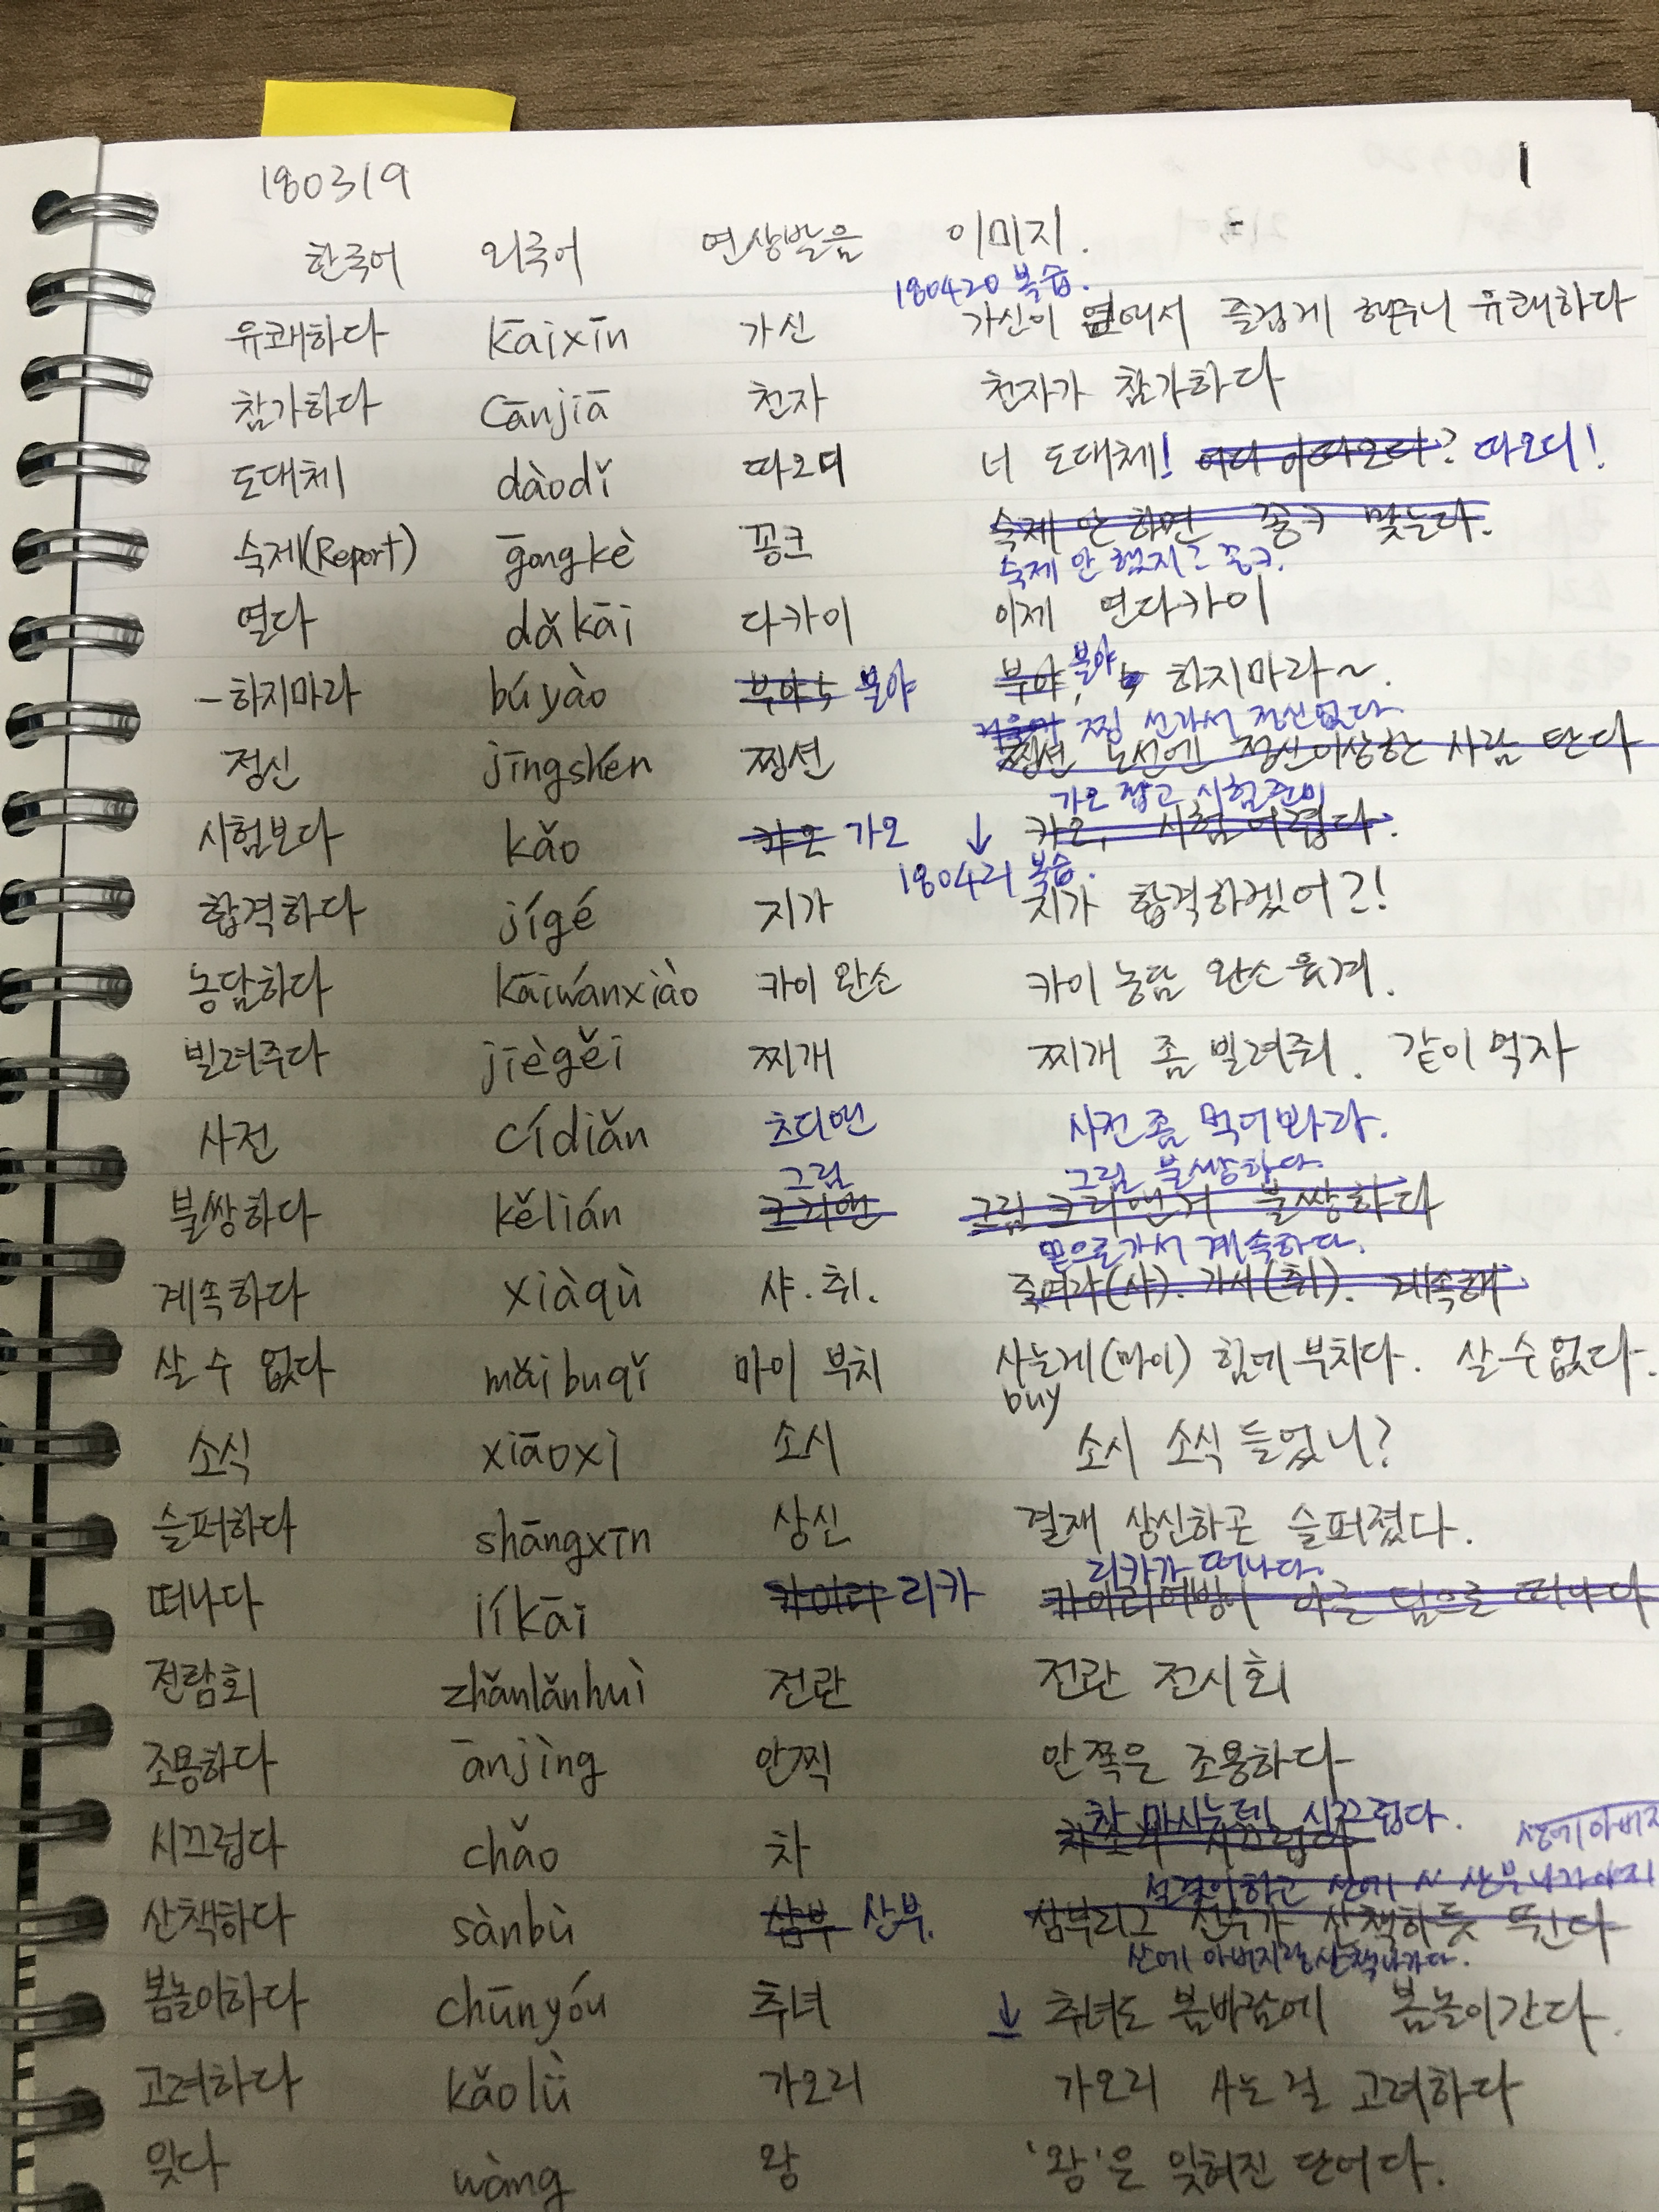 180319 1
한국어 외국어 연상발음 이미지.
180420 복습.
유쾌하다 kāixīn 가신 가신이 옆에서 즐겁게 해주니 유쾌하다
참가하다 cānjiā 천자 천자가 참가하다
도대체 dàodǐ 따오디 너 도대체! 어디 이따오디? 따오디!
숙제 안 하면 꽁크 맞는다.
숙제(Report) gōngkè 꽁크 숙제 안 했지? 꽁크.
열다 dǎkāi 다카이 이제 연다카이
-하지마라 búyào 부야 붇야 부야, 붇야 하지마라~.
찡 선가서 정신없다.
정신 jīngshén 찡션 찡션 노선엔 정신이상한 사람 탄다
가오 잡고 시험준비
시험보다 kǎo 캬오 가오 ↓ 캬오, 시험 어렵다.
180421 복습.
합격하다 jígé 지가 지가 합격하겠어?!
농담하다 kāiwánxiào 카이 완소 카이 농담 완소 웃겨.
빌려주다 jiègěi 찌개 찌개 좀 빌려줘. 같이 먹자
사전 cídiǎn 츠디앤 사전 좀 먹어봐라.
그럼 그럼 불쌍하다.
불쌍하다 kělián 크리앤 그럼 크리앤거 불쌍하다
밑으로가서 계속하다.
계속하다 xiàqù 샤.취. 죽여라(샤). 가서(취). 계속해
살 수 없다 mǎibuqǐ 마이 부치 사는게(마이) 힘에 부치다. 살 수 없다.
buy
소식 xiāoxi 소시 소시 소식 들었니?
슬퍼하다 shāngxīn 상신 결재 상신하곤 슬퍼졌다.
리카가 떠나다.
떠나다 líkāi 카이리 리카 카이리여방이 다른 팀으로 떠나다
전람회 zhǎnlǎnhuì 전란 전란 전시회
조용하다 ānjìng 안찍 안쪽은 조용하다
찻 마시는데 시끄럽다.
시끄럽다 chǎo 차 시끄럽다
산에 아버지
설겆이하고 산에 산부 나가야지
산책하다 sànbù 삼부 산부. 삼부리그 선수가 산책하듯 뛴다
산에 아버지랑 산책나가다.
봄놀이하다 chūnyóu 추녀 ↓ 추녀도 봄바람에 봄놀이간다.
고려하다 kǎolǜ 가오리 가오리 사는 걸 고려하다
잊다 wàng 왕 '왕'은 잊혀진 단어다.